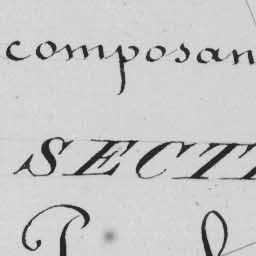 composan
SECTI